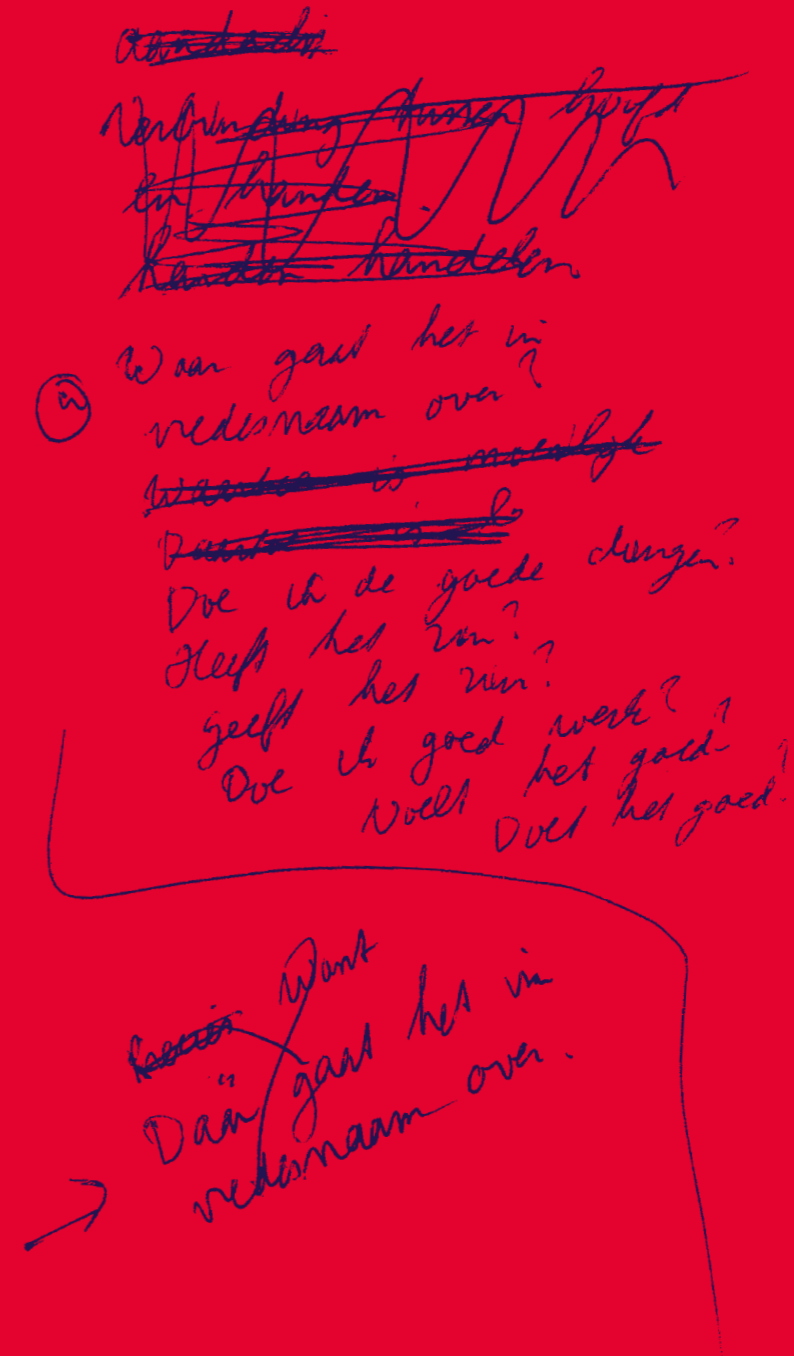 Verbinding tussen hoofd
en handen
handen handelen
Waar gaat het in
vredesnaam over?
Waarheen is moeilijk
Doe ik de goede dingen?
Heeft het zin?
geeft het zin?
Doe ik goed werk?
Voelt het goed?
Doet het goed?
Want
Däär gaat het in
vredesnaam over.